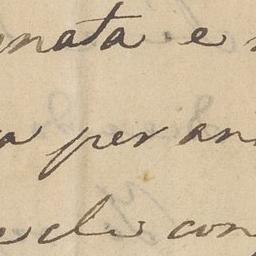 nata e
a per an
di con